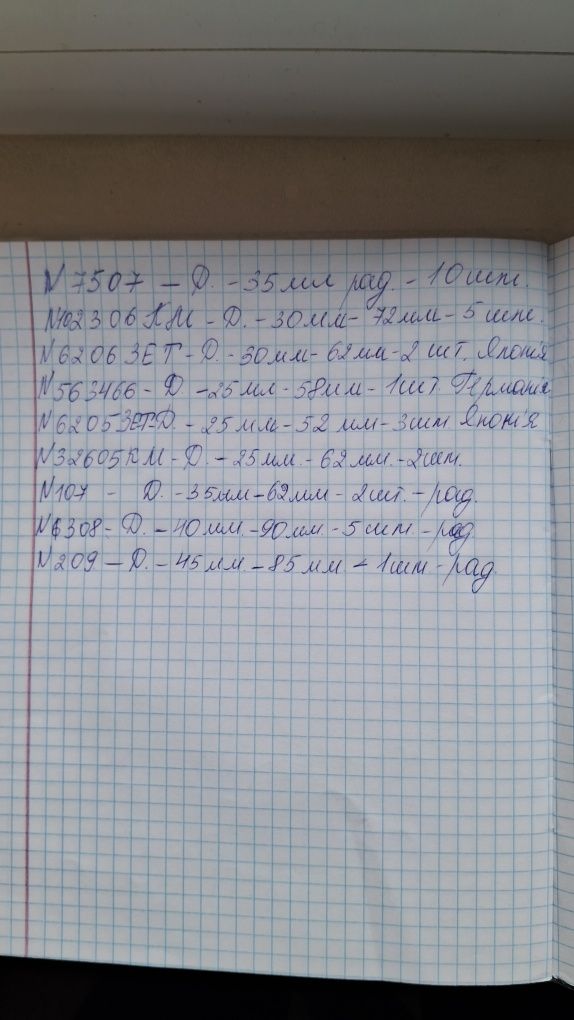 N 7507 – D. – 35мм рад. – 10 шт.
N102306 КМ – D. – 30мм – 72мм – 5 шт.
N6206ЗЕТ – D. – 30мм – 62мм – 2 шт. Японія
N563466 – D. – 25мм – 58мм – 1шт Германія
N6205ЗЕТ-D. – 25мм – 52 мм – 3шт Японія
N32605КМ – D. – 25мм. – 62мм. – 2шт.
N107 – D. – 35мм – 62мм – 2шт. – рад.
N6308 – D. – 40мм. – 90мм. – 5 шт. – рад
N209 – D. – 45мм. – 85мм – 1шт – рад.